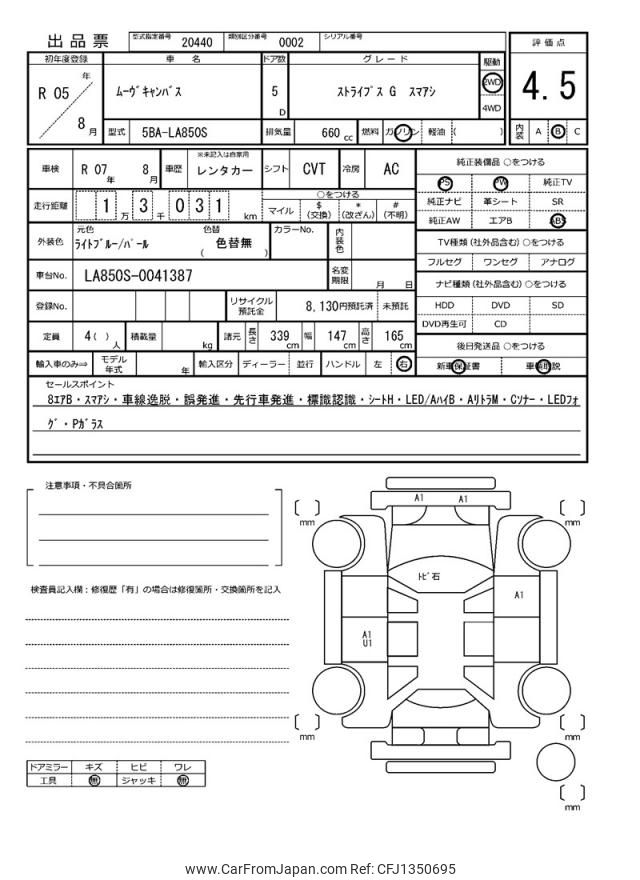 出品票 型式指定番号 20440 類別区分番号 0002 シリアル番号
初年度登録 車 名 ドア数 グレード 駆動 評価点
R 05 年 8 月 ムーヴキャンバス 5 D ストライプス G スマアシ 2WD 4WD 4.5
型式 5BA-LA850S 排気量 660 cc 燃料 ガソリン 軽油 ( ) 内装 A B C
車検 R 07 年 8 月 車歴 ※未記入は自家用 レンタカー シフト CVT 冷房 AC
走行距離 1 万 3 千 0 3 1 km ○をつける マイル $ (交換) * (改ざん) # (不明)
外装色 元色 ライトブルー/パール 色替 ( 色替無 ) カラーNo. 内装色
車台No. LA850S-0041387 名変期限 月 日
登録No. リサイクル預託金 8,130円預託済 未預託
定員 4( ) 人 積載量 kg 諸元 長さ 339 cm 幅 147 cm 高さ 165 cm
輸入車のみ⇒ モデル年式 年 輸入区分 ディーラー 並行 ハンドル 左 右
純正装備品 ○をつける
PS PW 純正TV
純正ナビ 革シート SR
純正AW エアB ABS
TV種類 (社外品含む) ○をつける
フルセグ ワンセグ アナログ
ナビ種類 (社外品含む) ○をつける
HDD DVD SD
DVD再生可 CD
後日発送品 ○をつける
新車保証書 車輌取説
セールスポイント
8エアB・スマアシ・車線逸脱・誤発進・先行車発進・標識認識・シートH・LED/AハイB・AリトラM・Cソナー・LEDフォ
グ・Pガラス
注意事項・不具合箇所
検査員記入欄:修復歴「有」の場合は修復箇所・交換箇所を記入
ドアミラー キズ ヒビ ワレ
工具 無 ジャッキ 無
A1 A1
mm mm
トビ石
A1
A1
U1
mm mm
mm
www.CarFromJapan.com Ref: CFJ1350695